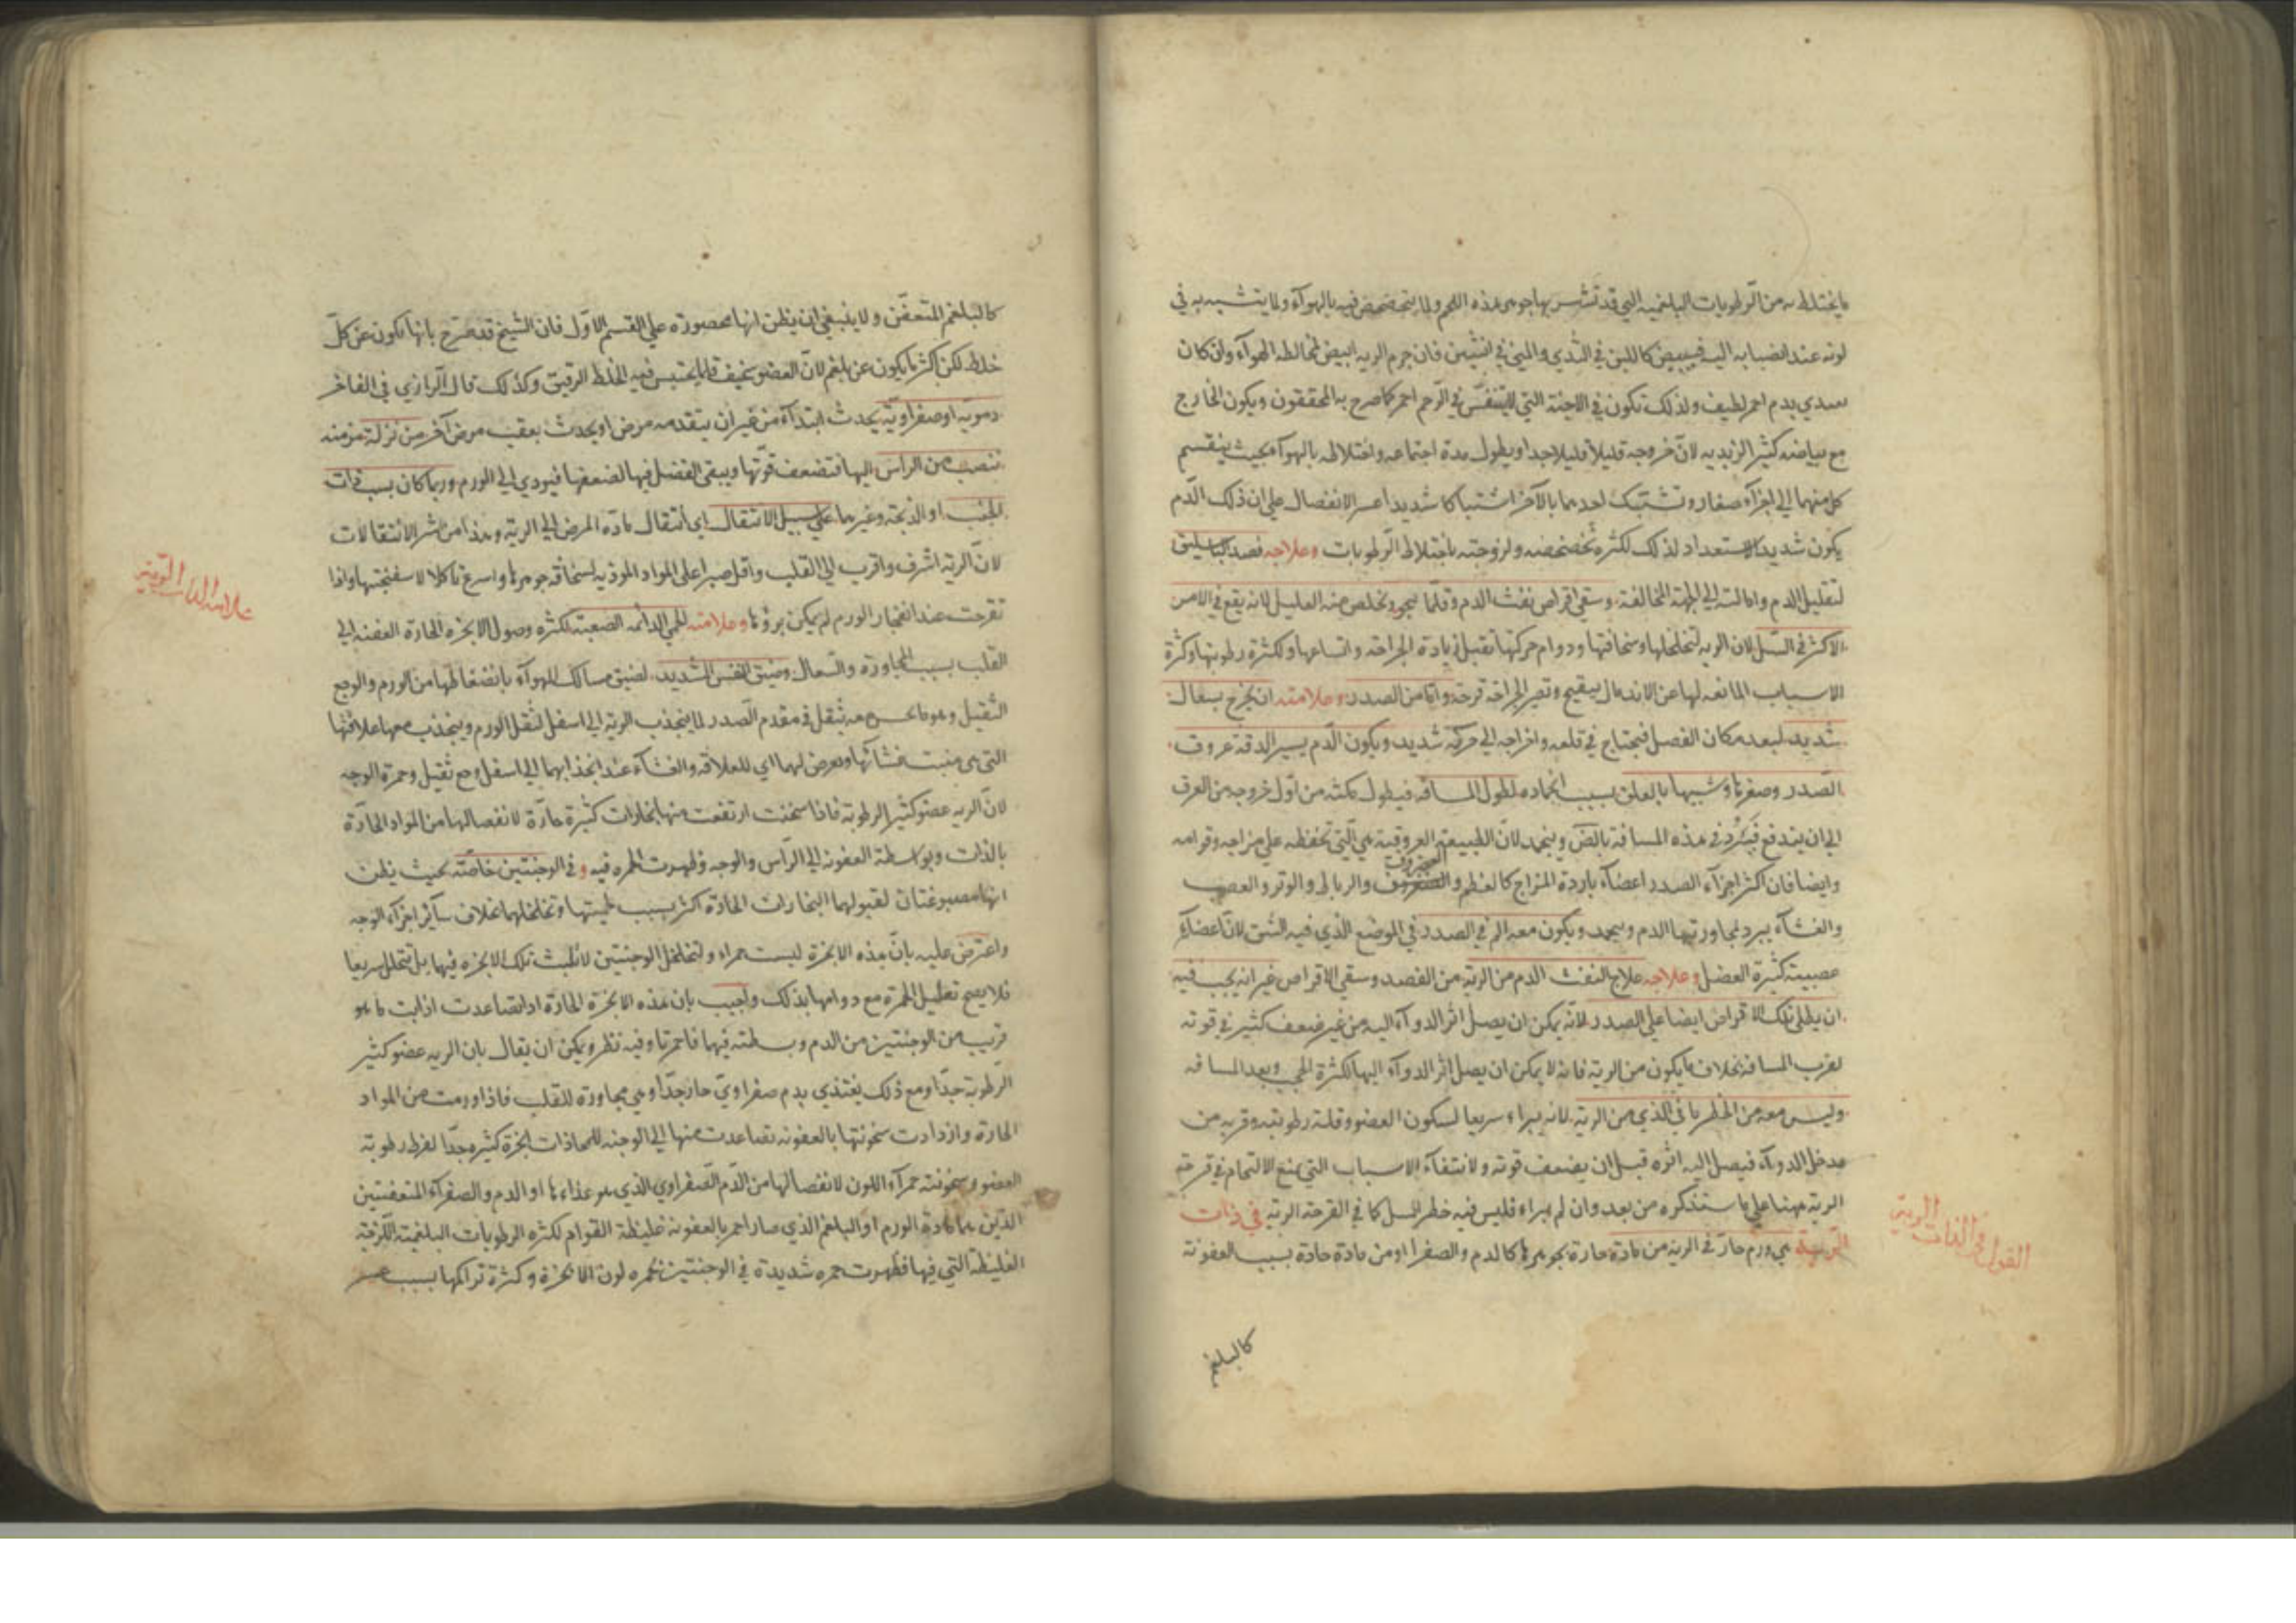 ما يختلط به من الرطوبات البلغمية التي قد تشرب بها جوهر هذه اللحم ولما يتخضخض فيه بالهوآء ولما يتشبه به في
لونه عند انصبابه اليه فيبيض كاللبن في الثدي والمني في انثيين فان جرم الريه ابيض لمخالطه الهوآء وان كان
يغتدي بدم احمر لطيف ولذلك تكون في الاجنة التي لا يتنفس في الرحم احمر كما صرح به المحققون ويكون الخارج
مع بياضه كثير الزبديه لانّ خروجه قليلاً قليلا جدا ويطول مدة اجتماعه واختلاطه بالهوآء بحيث ينقسم
كل منهما الي اجزآء صغار وتشتبك احدهما بالآخر اشتباكا شديدا عسر الانفصال علي ان ذلك الدم
يكون شديد الاستعداد لذلك لكثره تخضخضه ولزوجته باختلاط الرطوبات وعلاجه فصد الباسليق
لتقليل الدم وامالته الي الجهة المخالفة وسقي اقراص نفث الدم وقلما ينجو ويخلص منه العليل لانه يقع في الامر
الاكثر في السل لان الريه لتخلخلها وسخافتها ودوام حركتها تقبل زيادة الجراحة واتساعها ولكثرة رطوبتها وكثرة
الاسباب المانعه لها عن الاندمال يتقيح وتصير الجراحة قرحة واما من الصدر وعلامته ان يخرج بسعال
شديد لبعد مكان الفصل فيحتاج في قلعه واخراجه الي حركة شديد ويكون الدم يسيرا لدقة عروق
الصدر وصغرها وشبيها بالعلق بسبب انجماده لطول المسافة فيطول مكثه من اول خروجه من العرق
الي ان يندفع فيبرد في هذه المسافة بالضرورة وينجمد لانّ الطبيعة العروقية هي التي تحفظه علي مزاجه وقوامه
وايضا فان اكثر اجزآء الصدر اعضآء باردة المزاج كالعظم والغضروف والرباط والوتر والعصب
والغشآء يبرد بمجاورتها الدم ويجمد ويكون معه الم في الصدر في الموضع الذي فيه الشق لان اعضآء
عصبية كثيرة العضل وعلاجه علاج النفث الدم من الرية من الفصد وسقي الاقراص غير انه يجب فيه
ان يطلي تلك الاقراص ايضا علي الصدر لانه يمكن ان يصل اثر الدوآء اليه من غير ضعف كثير في قوته
لقرب المسافة بخلاف ما يكون من الرية فانه لا يمكن ان يصل اثر الدوآء اليها لكثرة الحجب وبعد المسافه
وليس معه من الخطر ما في الذي من الرية لانه يبراء سريعا لسكون العضو وقلة رطوبته وقربه من
مدخل الدوآء فيصل اليه اثره قبل ان يضعف قوته ولانتفآء الاسباب التي تمنع الالتحام في قرحة
الرية مهنا علي ما سنذكره من بعد وان لم يبراء فليس فيه خطر السل كما في القرحة الرية في ذات
الرية هي ورم حار في الرية من مادة حارة بجوهرها كالدم والصفرا او من مادة حادة بسبب العفونة
القول في الذات الرية
كالبلغم
كالبلغم المتعفّن ولا ينبغي ان يظن انها محصورة علي القسم الاول فان الشيخ قد صرح بانها تكون عن كلّ
خلط لكن اكثر ما يكون عن بلغم لانّ العضو سخيف قلما يحتبس فيه الخلط الرقيق وكذلك قال الرازي في الفاخر
دموية او صفراوية يحدث ابتدآء من غير ان يتقدمه مرض او يحدث بعقب مرض آخر من نزلة مزمنة
تنصب من الراس اليها فتضعف قوتها ويبقي الفضل فيها لضعفها فيودي الي الورم وربما كان بسبب ذات
الجنب او الذبحة وغيرهما علي سبيل الانتقال اي انتقال مادة المرض الي الرية وهذا من شر الانتقالات
لان الرية اشرف واقرب الي القلب واقل صبرا علي المواد الموذيه لسخافة جوهرها واسرع تاكلا لاسفنجيتها واذا
تقرحت عند انفجار الورم لم يمكن برؤها وعلامته الحمي الدائمه الصعبة لكثره وصول الابخره الحارة العفنه الي
القلب بسبب المجاورة والسعال وضيق النفس الشديد لضيق مسالك الهوآء بانضغاطها من الورم والوجع
الثقيل وهو ما يحس معه ثقل في مقدم الصدر لما ينجذب الرية الي اسفل لثقل الورم وينجذب معها علاقتها
التي هي منبت غشائها ويعرض لهما اي للعلاقة والغشآء عند انجذابهما الي اسفل وجع ثقيل وحمرة الوجه
لانّ الريه عضو كثير الرطوبة فاذا سخنت ارتفعت منها بخارات كثيرة حارة لانفصالها من المواد الحارة
بالذات وبواسطة العفونه الي الراس والوجه وظهرت الحمره فيه وفي الوجنتين خاصّة بحيث يظن
انها مصبوغتان لقبولهما البخارات الحادة اكثر بسبب لحميتها وتخلخلهما بخلاف سآئر اجزآء الوجه
واعترض عليه بان هذه الابخرة ليست حمراء ولتخلخل الوجنتين لا تلبث تلك الابخره فيها بل تتحلل سريعا
فلا يصح تعليل الحمرة مع دوامها بذلك واجيب بان هذه الابخرة الحارة اذا تصاعدت اذابت ما هو
قريب من الوجنتين من الدم وبسطته فيها فاحمرتا وفيه نظر ويمكن ان يقال بان الريه عضو كثير
الرطوبة جدّا ومع ذلك يغتذي بدم صفراويّ حار جدّا وهي مجاورة للقلب فاذا ورمت من المواد
الحارة وازدادت سخونتها بالعفونه تصاعدت منها الي الوجنه للمحاذات ابخرة كثيره جدّا لفرط رطوبة
العضو وسخونته حمرآء اللون لانفصالها من الدّم الصّفراوي الذي هو غذاءها او الدم والصفرآء المتعفنتين
الذين هما مادة الورم او البلغم الذي صار احمر بالعفونه غليظة القوام لكثره الرطوبات البلغمية اللزجة
الغليظة التي فيها فظهرت حمره شديدة في الوجنتين لحمره لون الابخرة وكثرة تراكمها بسبب عسر